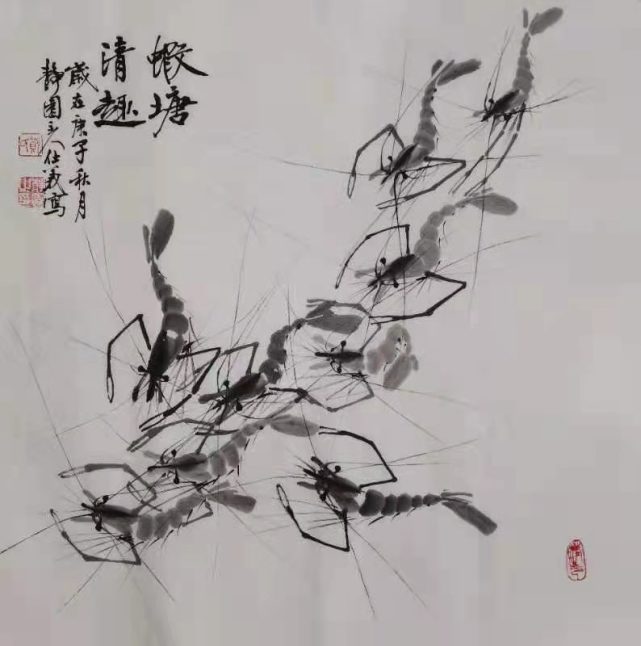 蝦塘
清趣
歲在庚子秋月
靜園主人仕義寫